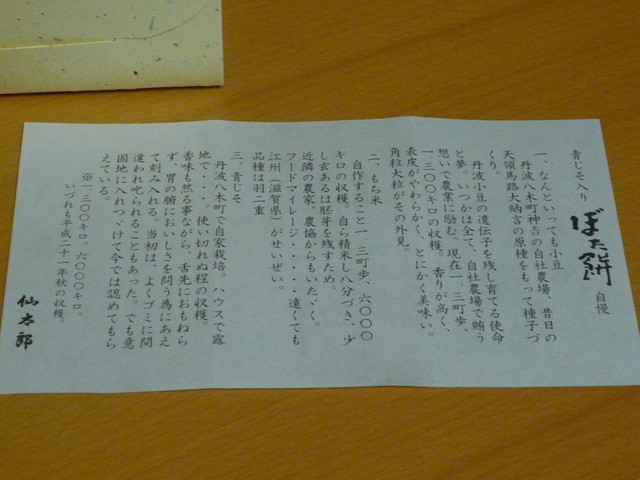 青じそ入り
ぼた餅 自慢
一、なんといっても小豆
丹波八木町神吉の自社農場、昔日の
天領馬路大納言の原種をもって種子づ
くり。
丹波小豆の遺伝子を残し育てる使命
と夢、いつかは全て、自社農場で賄う
想いで農業に励む。現在一.三町歩、
一.三〇〇キロの収穫。香りが高く、
表皮がやわらかく、とにかく美味い。
角粒大粒がその外見。
二、もち米
自作すること一.三町歩、六〇〇〇
キロの収穫。自ら精米し八分づき、少
し玄あるは胚芽を残すため。
近隣の農家、農協からもいたゞく。
フードマイレージ・・・・、遠くても
江州(滋賀県)がせいぜい。
品種は羽二重
三、青じそ
丹波八木町で自家栽培。ハウスで露
地で・・・。使い切れぬ程の収穫。
香味も然る事ながら、舌先におもねら
ず、胃の腑においしさを問う為にあえ
て刻み入れる。当初は、よくゴミに間
違われ叱られることもあった。でも意
固地に入れつゞけて今では認めてもら
えている。
※一.三〇〇キロ。六〇〇〇キロ。
いづれも平成二十一年秋の収穫。
仙太郎